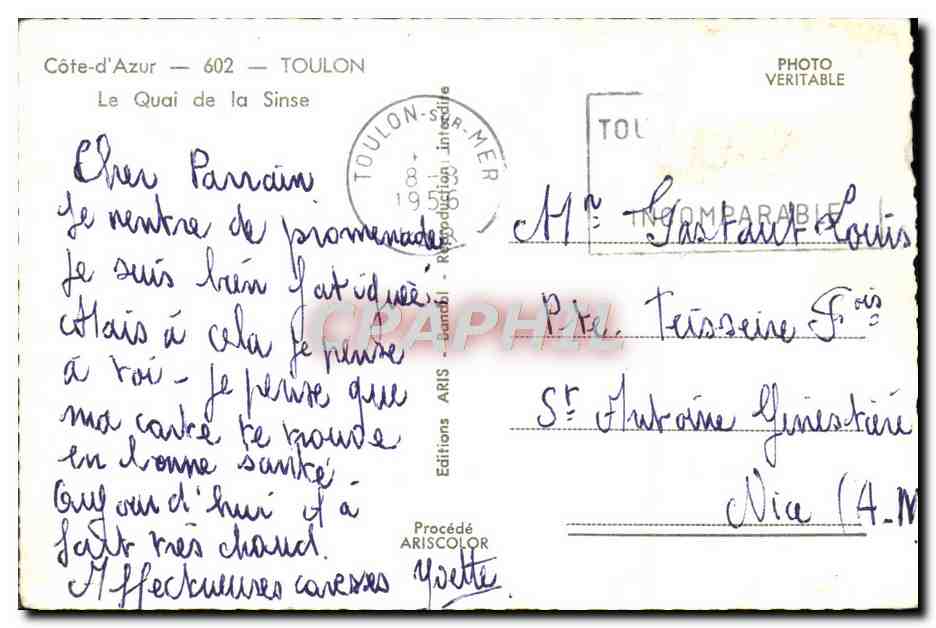 Côte-d'Azur — 602 — TOULON
Le Quai de la Sinse
PHOTO
VERITABLE
TOULON-SUR-MER
1956
TOU
INCOMPARABLE
Cher Parrain
Je rentre de promenade
Je suis bien fatiguée.
Mais à cela je pense
à toi - Je pense que
ma carte te trouve
en bonne santé
Aujourd'hui il à
fait très chaud.
Affectueuses caresses Yvette
Editions ARIS - Bandol - Reproduction interdite
Mr Gastaut Louis
Pte. Teisseire Fois
St Antoine Ginestière
Nice (A-M
Procédé
ARISCOLOR
CPAPHIL